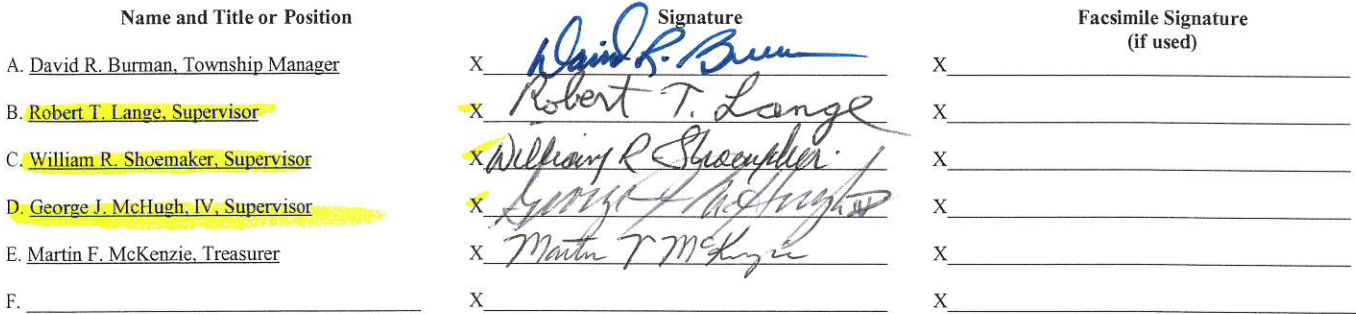 Name and Title or Position Signature Facsimile Signature
(if used)
A. David R. Burman, Township Manager X David R. Burman X
B. Robert T. Lange, Supervisor X Robert T. Lange X
C. William R. Shoemaker, Supervisor X William R Shoemaker X
D. George J. McHugh, IV, Supervisor X George J McHugh IV X
E. Martin F. McKenzie, Treasurer X Martin F McKenzie X
F. X X